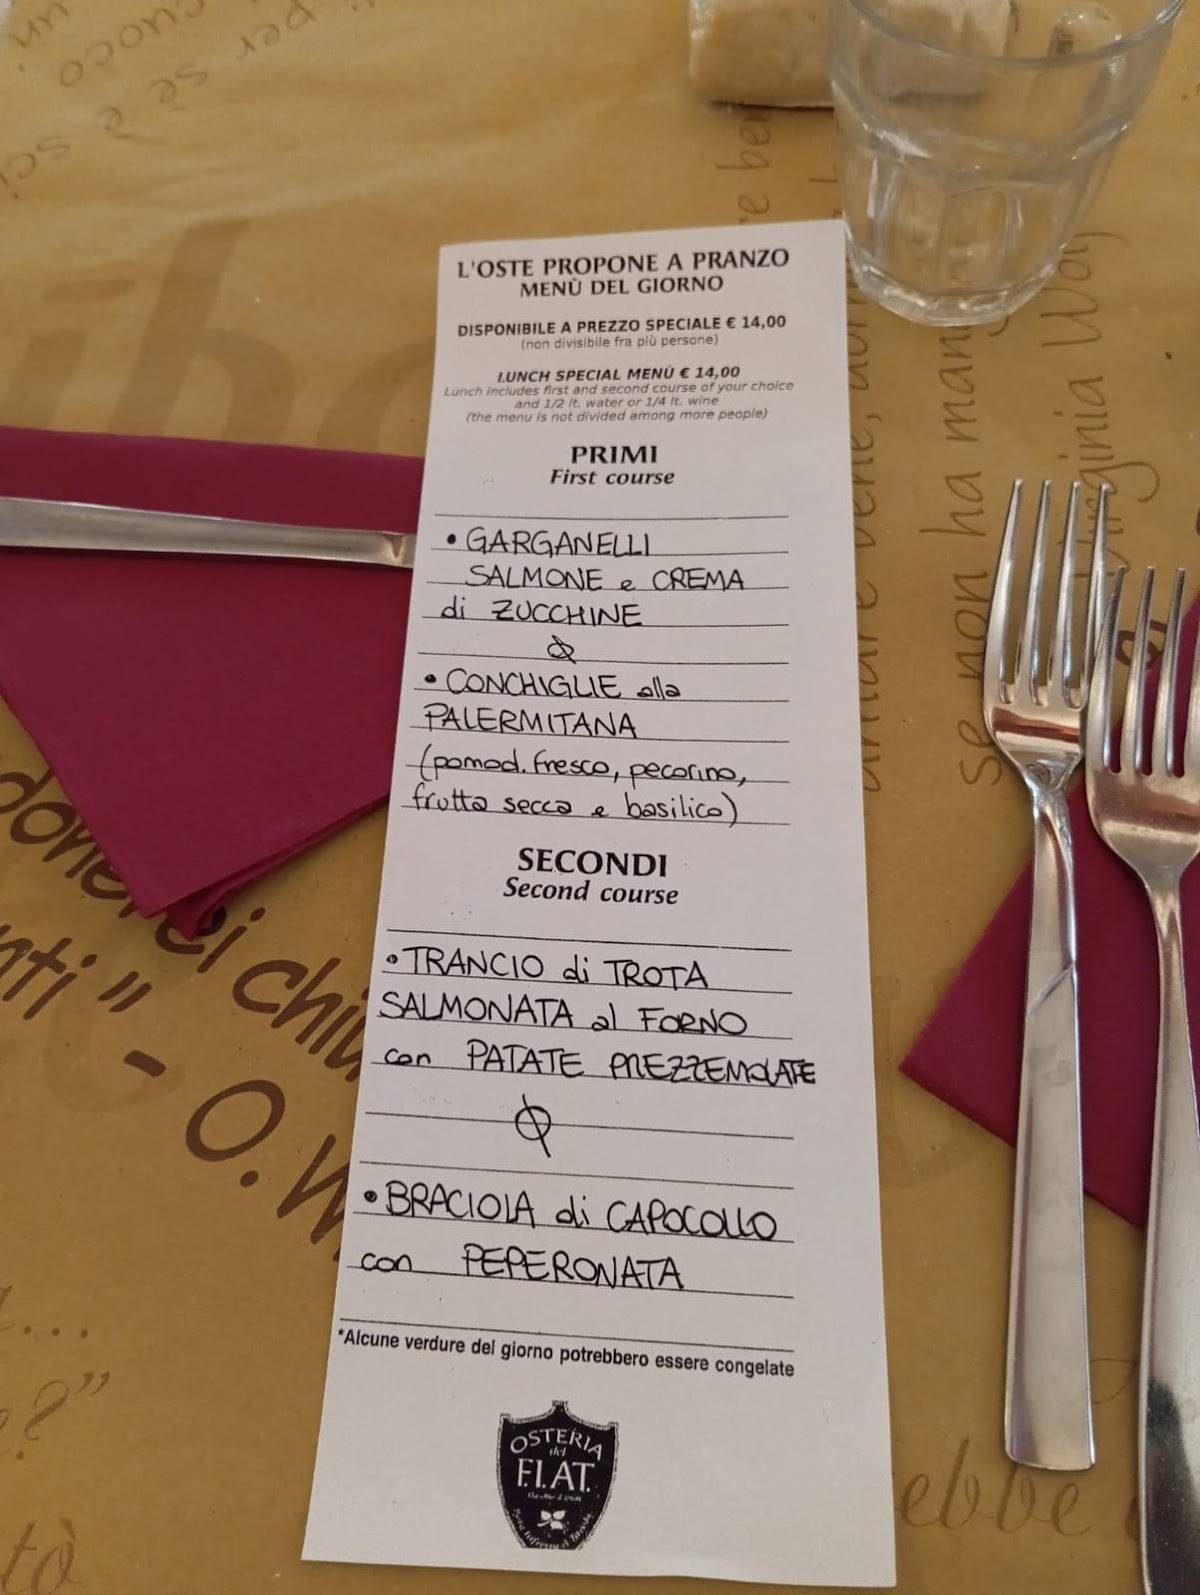 L'OSTE PROPONE A PRANZO
MENÙ DEL GIORNO
DISPONIBILE A PREZZO SPECIALE € 14,00
(non divisibile fra più persone)
LUNCH SPECIAL MENÙ € 14,00
Lunch includes first and second course of your choice
and 1/2 lt. water or 1/4 lt. wine
(the menu is not divided among more people)
PRIMI
First course
• GARGANELLI
SALMONE e CREMA
di ZUCCHINE
• CONCHIGLIE alla
PALERMITANA
(pomod. fresco, pecorino,
frutta secca e basilico)
SECONDI
Second course
• TRANCIO di TROTA
SALMONATA al FORNO
con PATATE PREZZEMOLATE
• BRACIOLA di CAPOCOLLO
con PEPERONATA
*Alcune verdure del giorno potrebbero essere congelate
OSTERIA
del
F.I.A.T.
per sè è
cuoco
un
sci
se non ha man
Virginia Wo
nti" - O. W
ebbe
tà